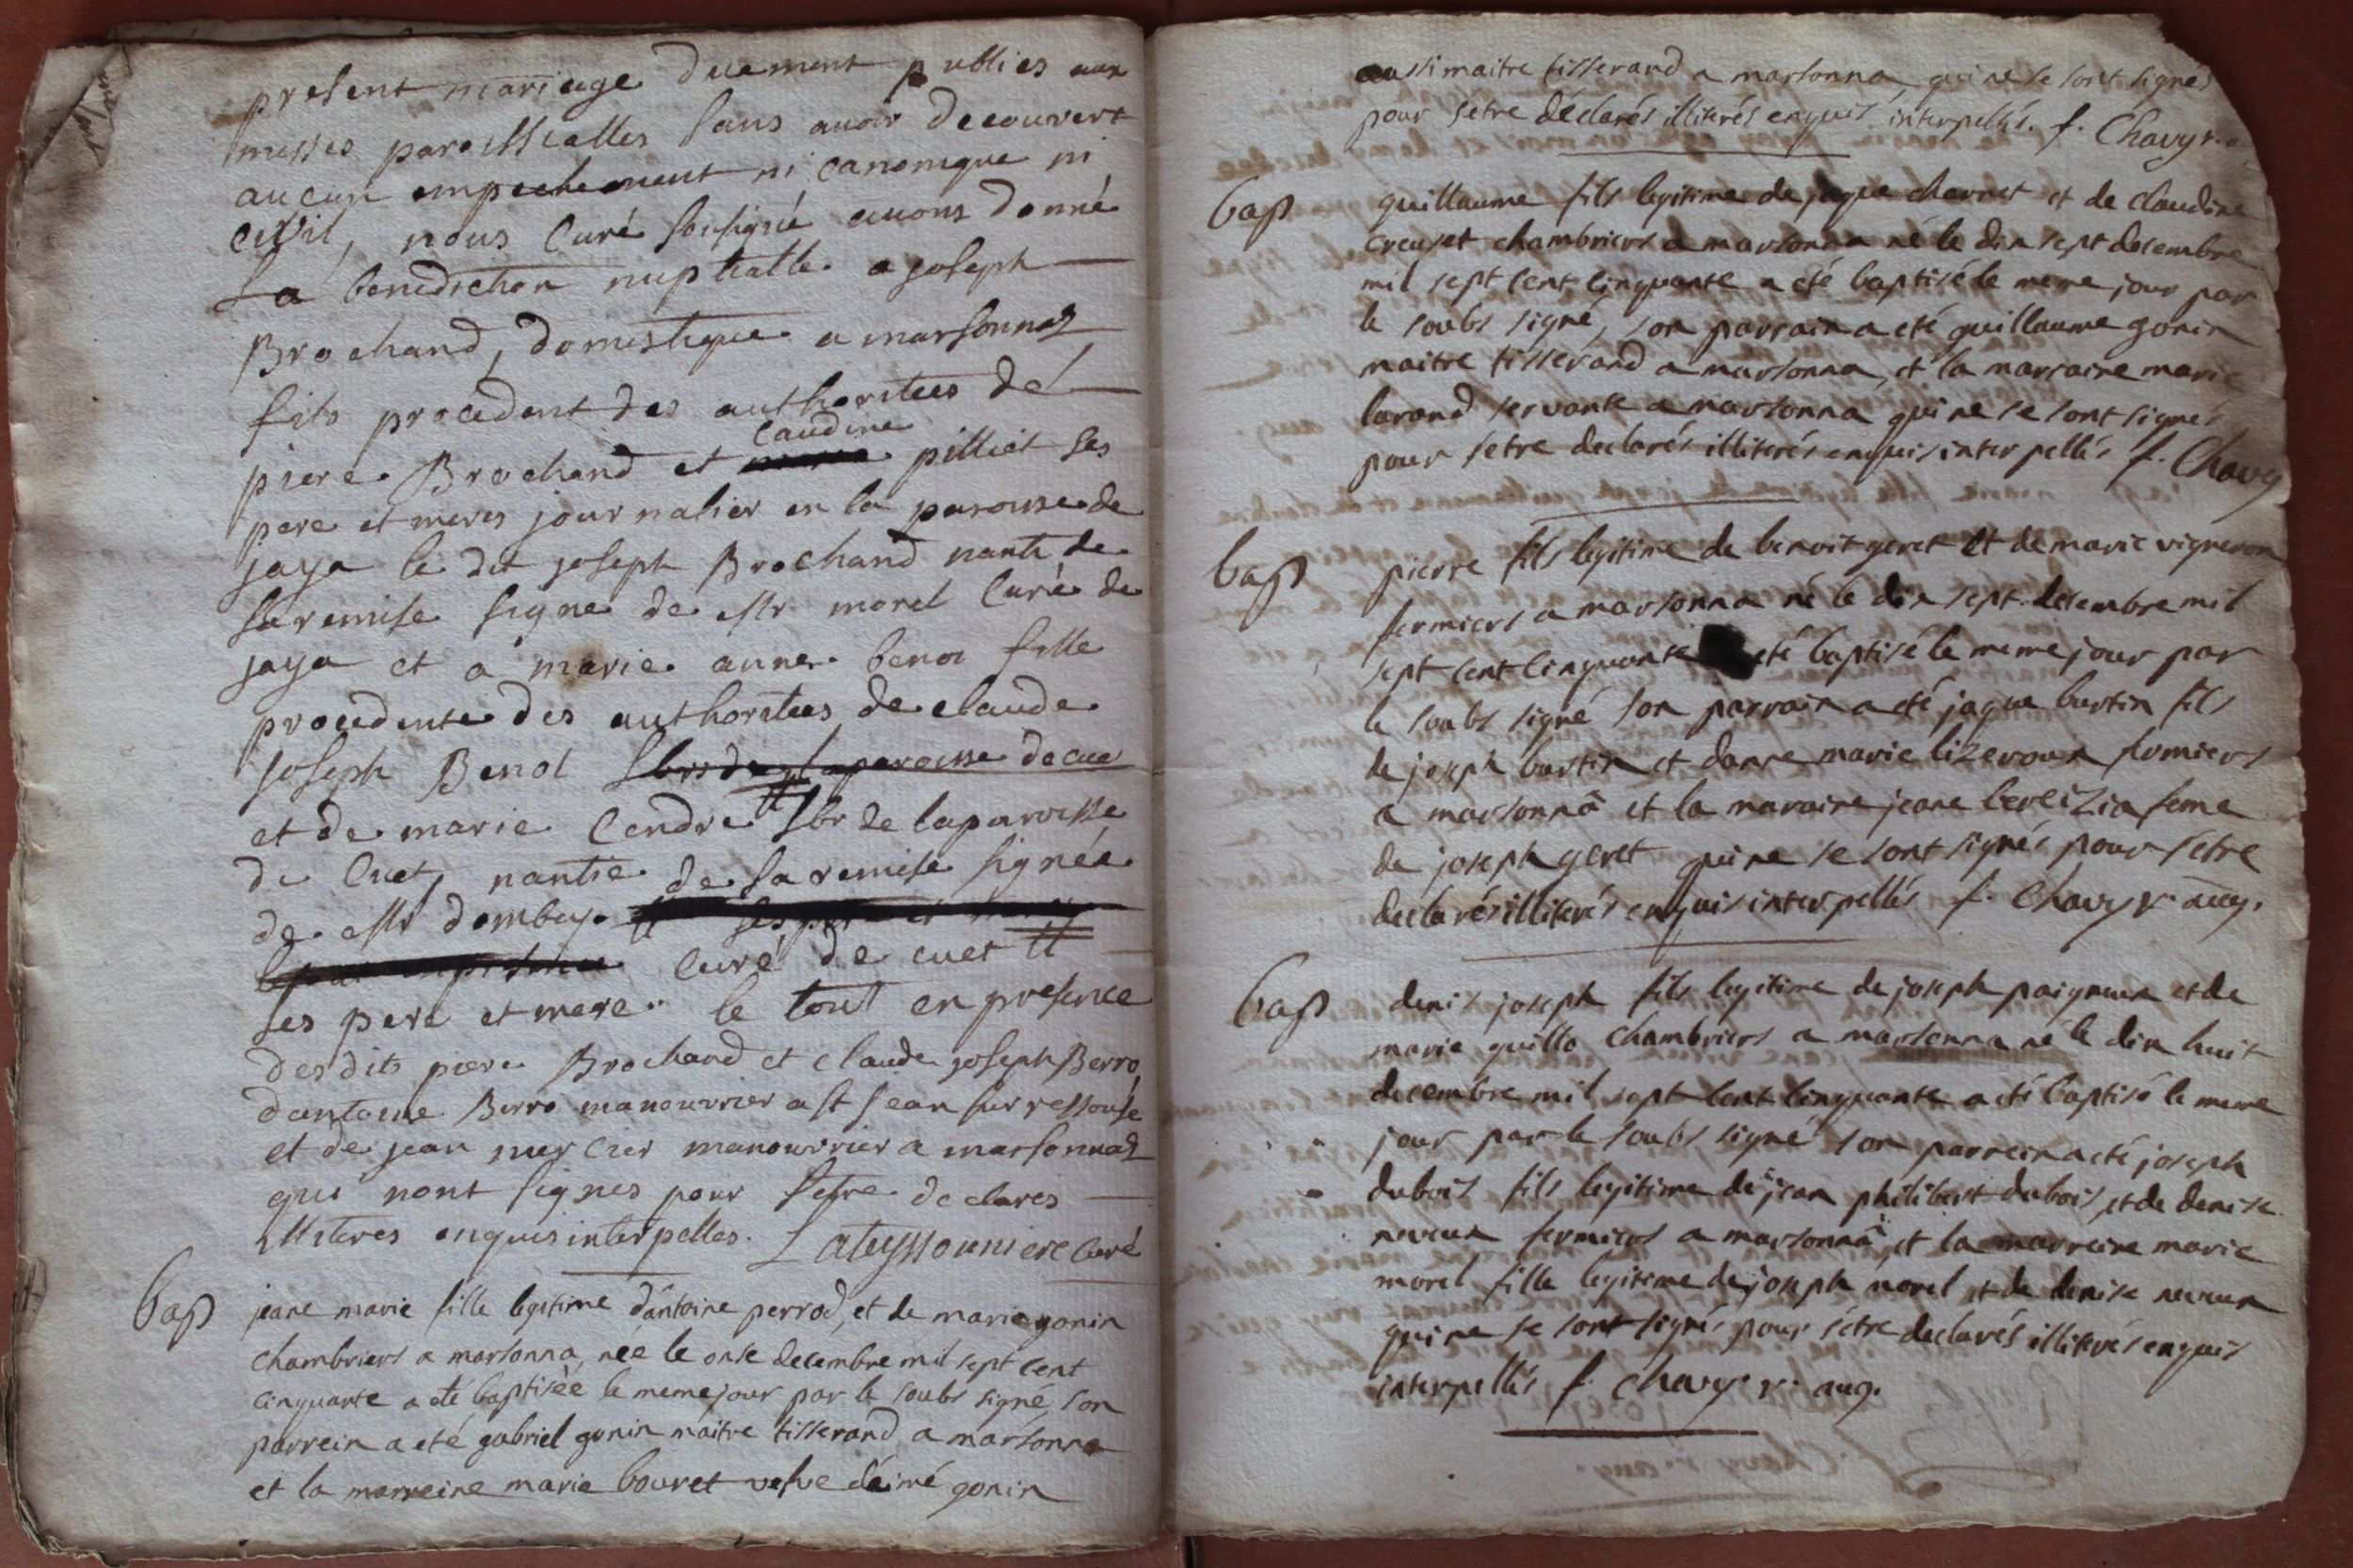 present mariage duement publies aux
messes paroissialles sans avoir decouvert
aucun empechement ni canonique ni
civil, nous curé sousigné avons donné
la benediction nuptialle a joseph
Brochand, domestique a marsonnas
fils procedent des authoritees de
piere Brochand et claudine pilliet ses
pere et meres journalier en la paroisse de
jaya le dit joseph Brochand nanti de
sa remise signe de Mr morel curé de
jaya et a marie anne benoi fille
procedente des authoritees de claude
joseph Benol sbr de la paroisse de cue
et de marie Cendre sbr de la paroisse
de Cuet, nantie de sa remise signée
de Mr dombey
curé de cuet
ses pere et mere le tout en presence
des dits piere Brochand et claude joseph Berro,
dantoine Berro manouvrier a st jean sur ressouse
et de jean mercier manouvrier a marsonnas
qui nont signes pour setre declares
illiteres enquis interpelles. Lateyssonniere curé
bap jeane marie fille legitime d'antoine perrod, et de marie gonin
chambriers a marsonna, née le onse decembre mil sept cent
cinquante a été baptisée le meme jour par le soubs signé, son
parrein a eté gabriel gonin maitre tisserand a marsonna
et la marreine marie bouret veuve d'aimé gonin
aussi maitre tisserand a marsonna, qui ne se sont signés
pour setre déclarés illiterés enquis interpellés. f. Chavy v.
bap guillaume fils legitime de jaque charnet et de claudine
creuset chambriers a marsonna né le dix sept decembre
mil sept cent cinquante a été baptisé le meme jour par
le soubs signé, son parrain a eté guillaume gonin
maitre tisserand a marsonna, et la marraine marie
lurand servante a marsonna qui ne se sont signés
pour setre declarés illiterés enquis interpellés f. Chavy
bap pierre fils legitime de benoit geret et de marie vigneron
fermiers a marsonna né le dix sept decembre mil
sept cent cinquante été baptisé le meme jour par
le soubs signé son parrain a eté jaque burtin fils
de joseph burtin et danne marie lizeroux fermiers
a marsonna et la maraine jeane berlizia feme
de joseph geret qui ne se sont signés pour setre
declarés illiterés enquis interpellés f. Chavy v. aug.
bap denis joseph fils legitime de joseph paigneux et de
marie guillo chambriers a marsonna né le dix huit
decembre mil sept cent cinquante a été baptisé le meme
jour par le soubs signé son parrein a eté joseph
dubois fils legitime de jean philibert dubois, et de denise
neveux fermiers a marsonna, et la marreine marie
morel fille legitime de joseph morel et de denise neveux
qui ne se sont signés pour sétre declarés illiterés enquis
interpellés f. chavy v. aug.